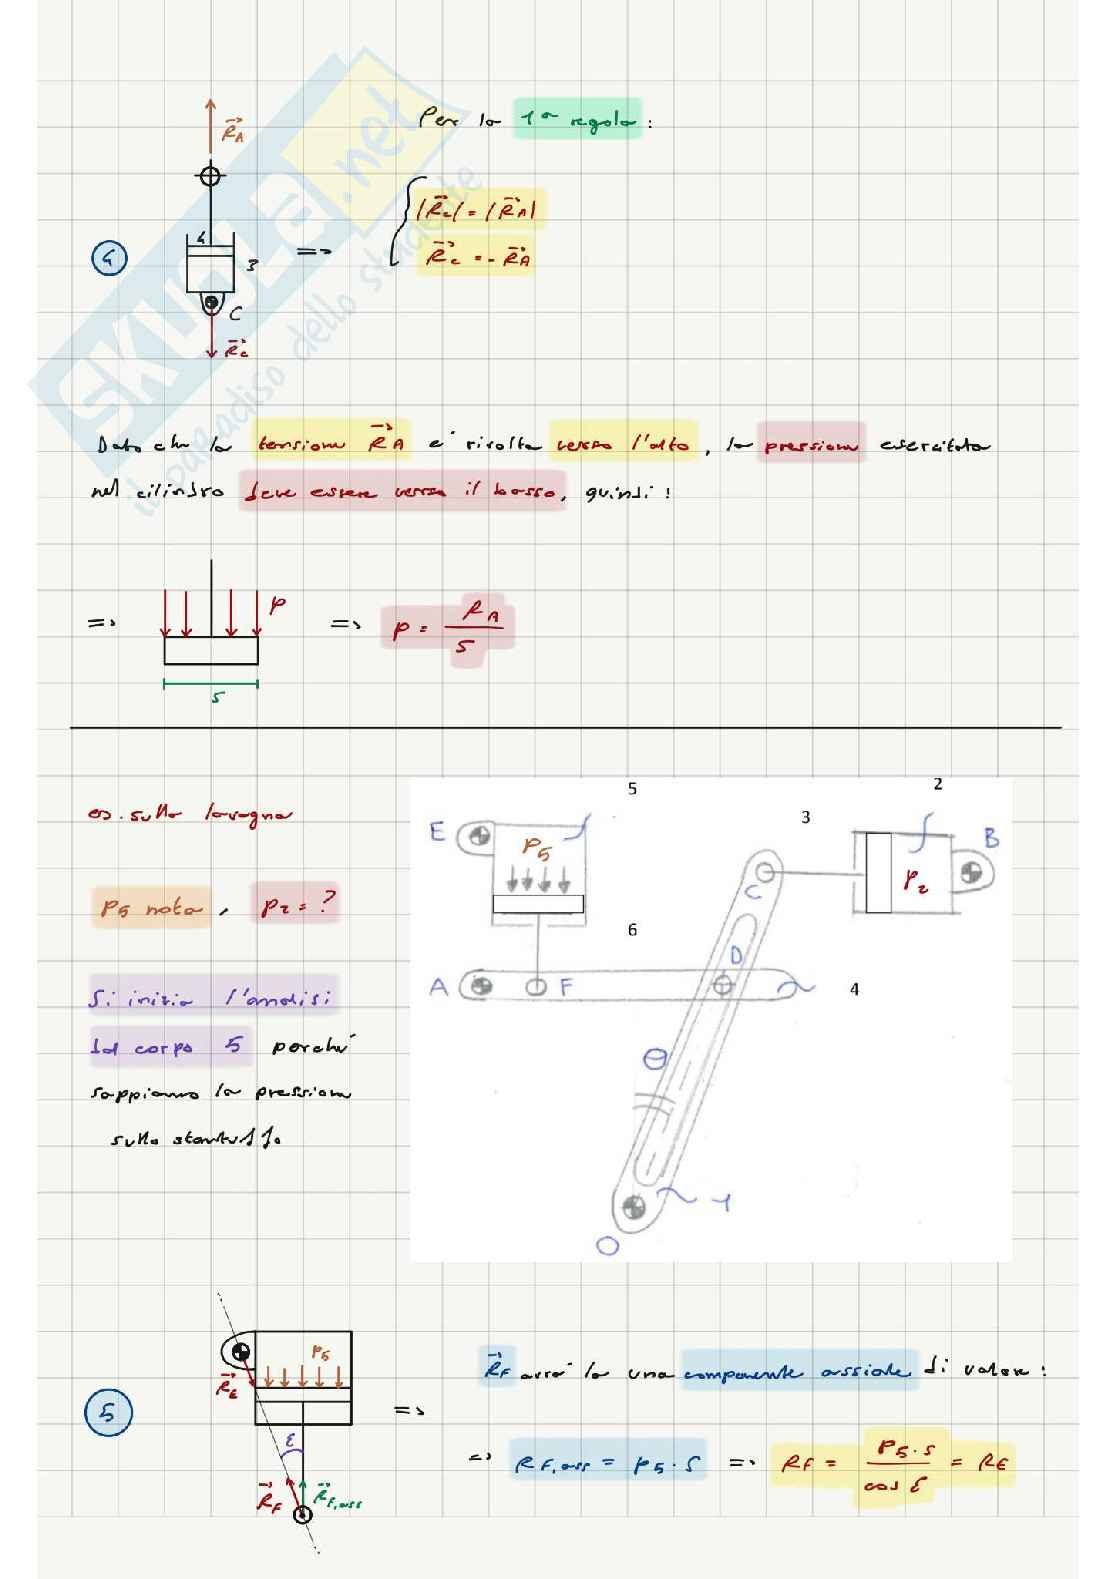 R⃗A
Per la 1ª regola:
4
4
3
C
R⃗c
=>
|R⃗c| = |R⃗A|
R⃗c = - R⃗A
SKUOLA.net
il paradiso dello studente
Dato che la tensione R⃗A e' rivolta verso l'alto, la pressione esercitata
nel cilindro deve essere verso il basso, quindi:
=>
p
=> p = RA / S
S
es. sulla lavagna
p5 nota, p2 = ?
Si inizia l'analisi
del corpo 5 perché
sappiamo la pressione
sullo stantuffo
5
2
3
E
P5
B
P2
C
6
D
A
F
4
θ
1
O
5
P5
R⃗E
ε
R⃗F
R⃗F,ass
=>
R⃗F avrà la una componente assiale di valore:
=> RF,ass = p5 · S => RF = p5 · S / cos ε = RE